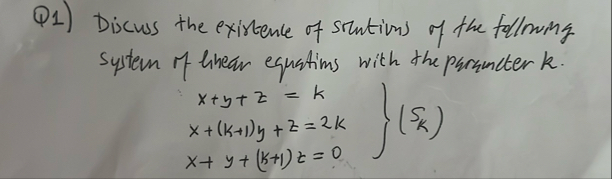 Q1) Discuss the existence of solutions of the following
system of linear equations with the parameter k.
x+y+z = k
x+(k+1)y+z=2k
x+y+(k+1)z=0
} (S_k)